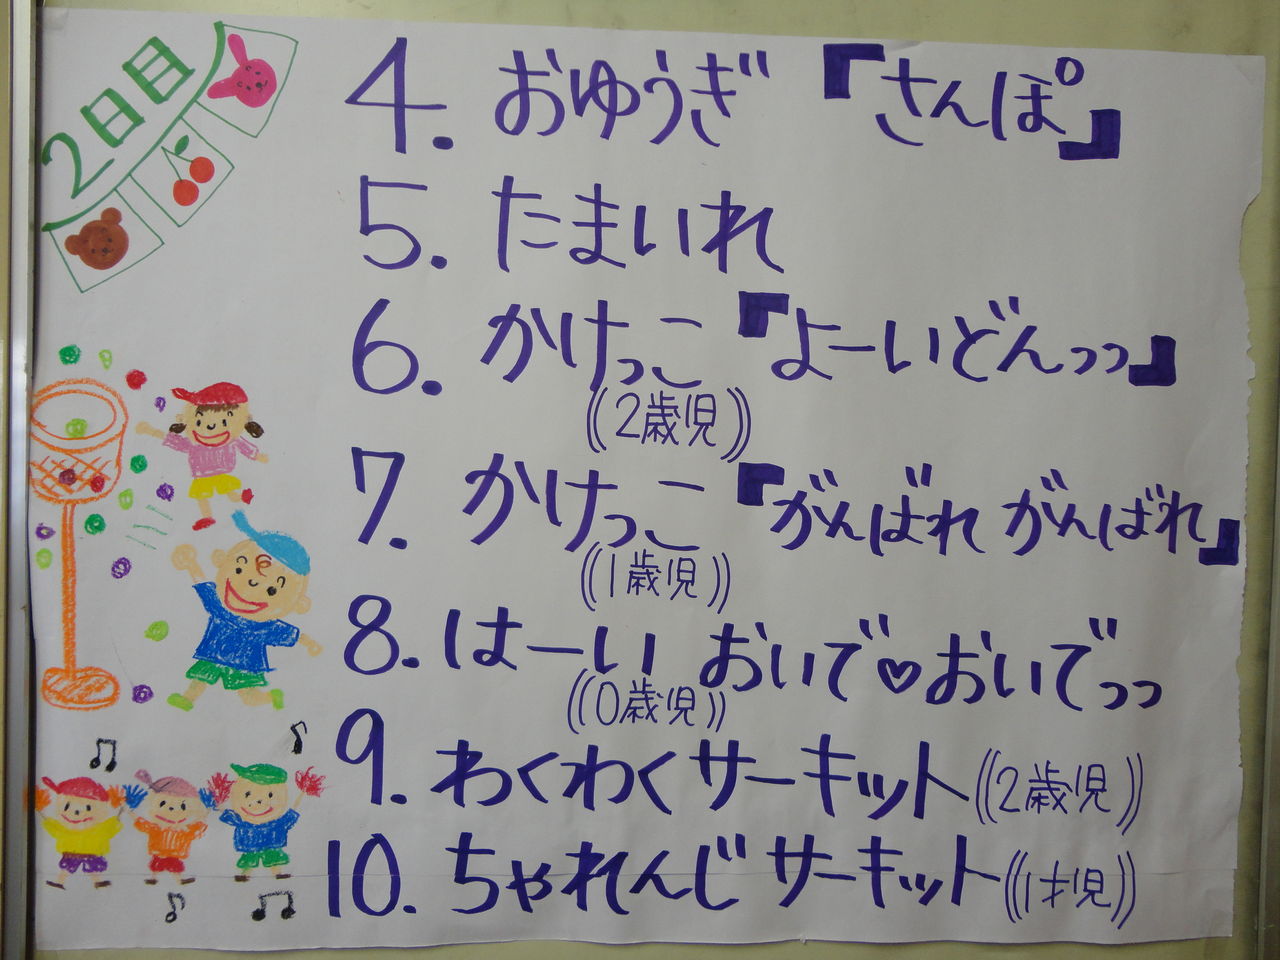 2日目
4. おゆうぎ 『さんぽ』
5. たまいれ
6. かけっこ『よーいどんっっ』
((2歳児))
7. かけっこ『がんばれ がんばれ』
((1歳児))
8. はーい おいで♡おいでっっ
((0歳児))
9. わくわくサーキット((2歳児))
10. ちゃれんじサーキット((1才児))